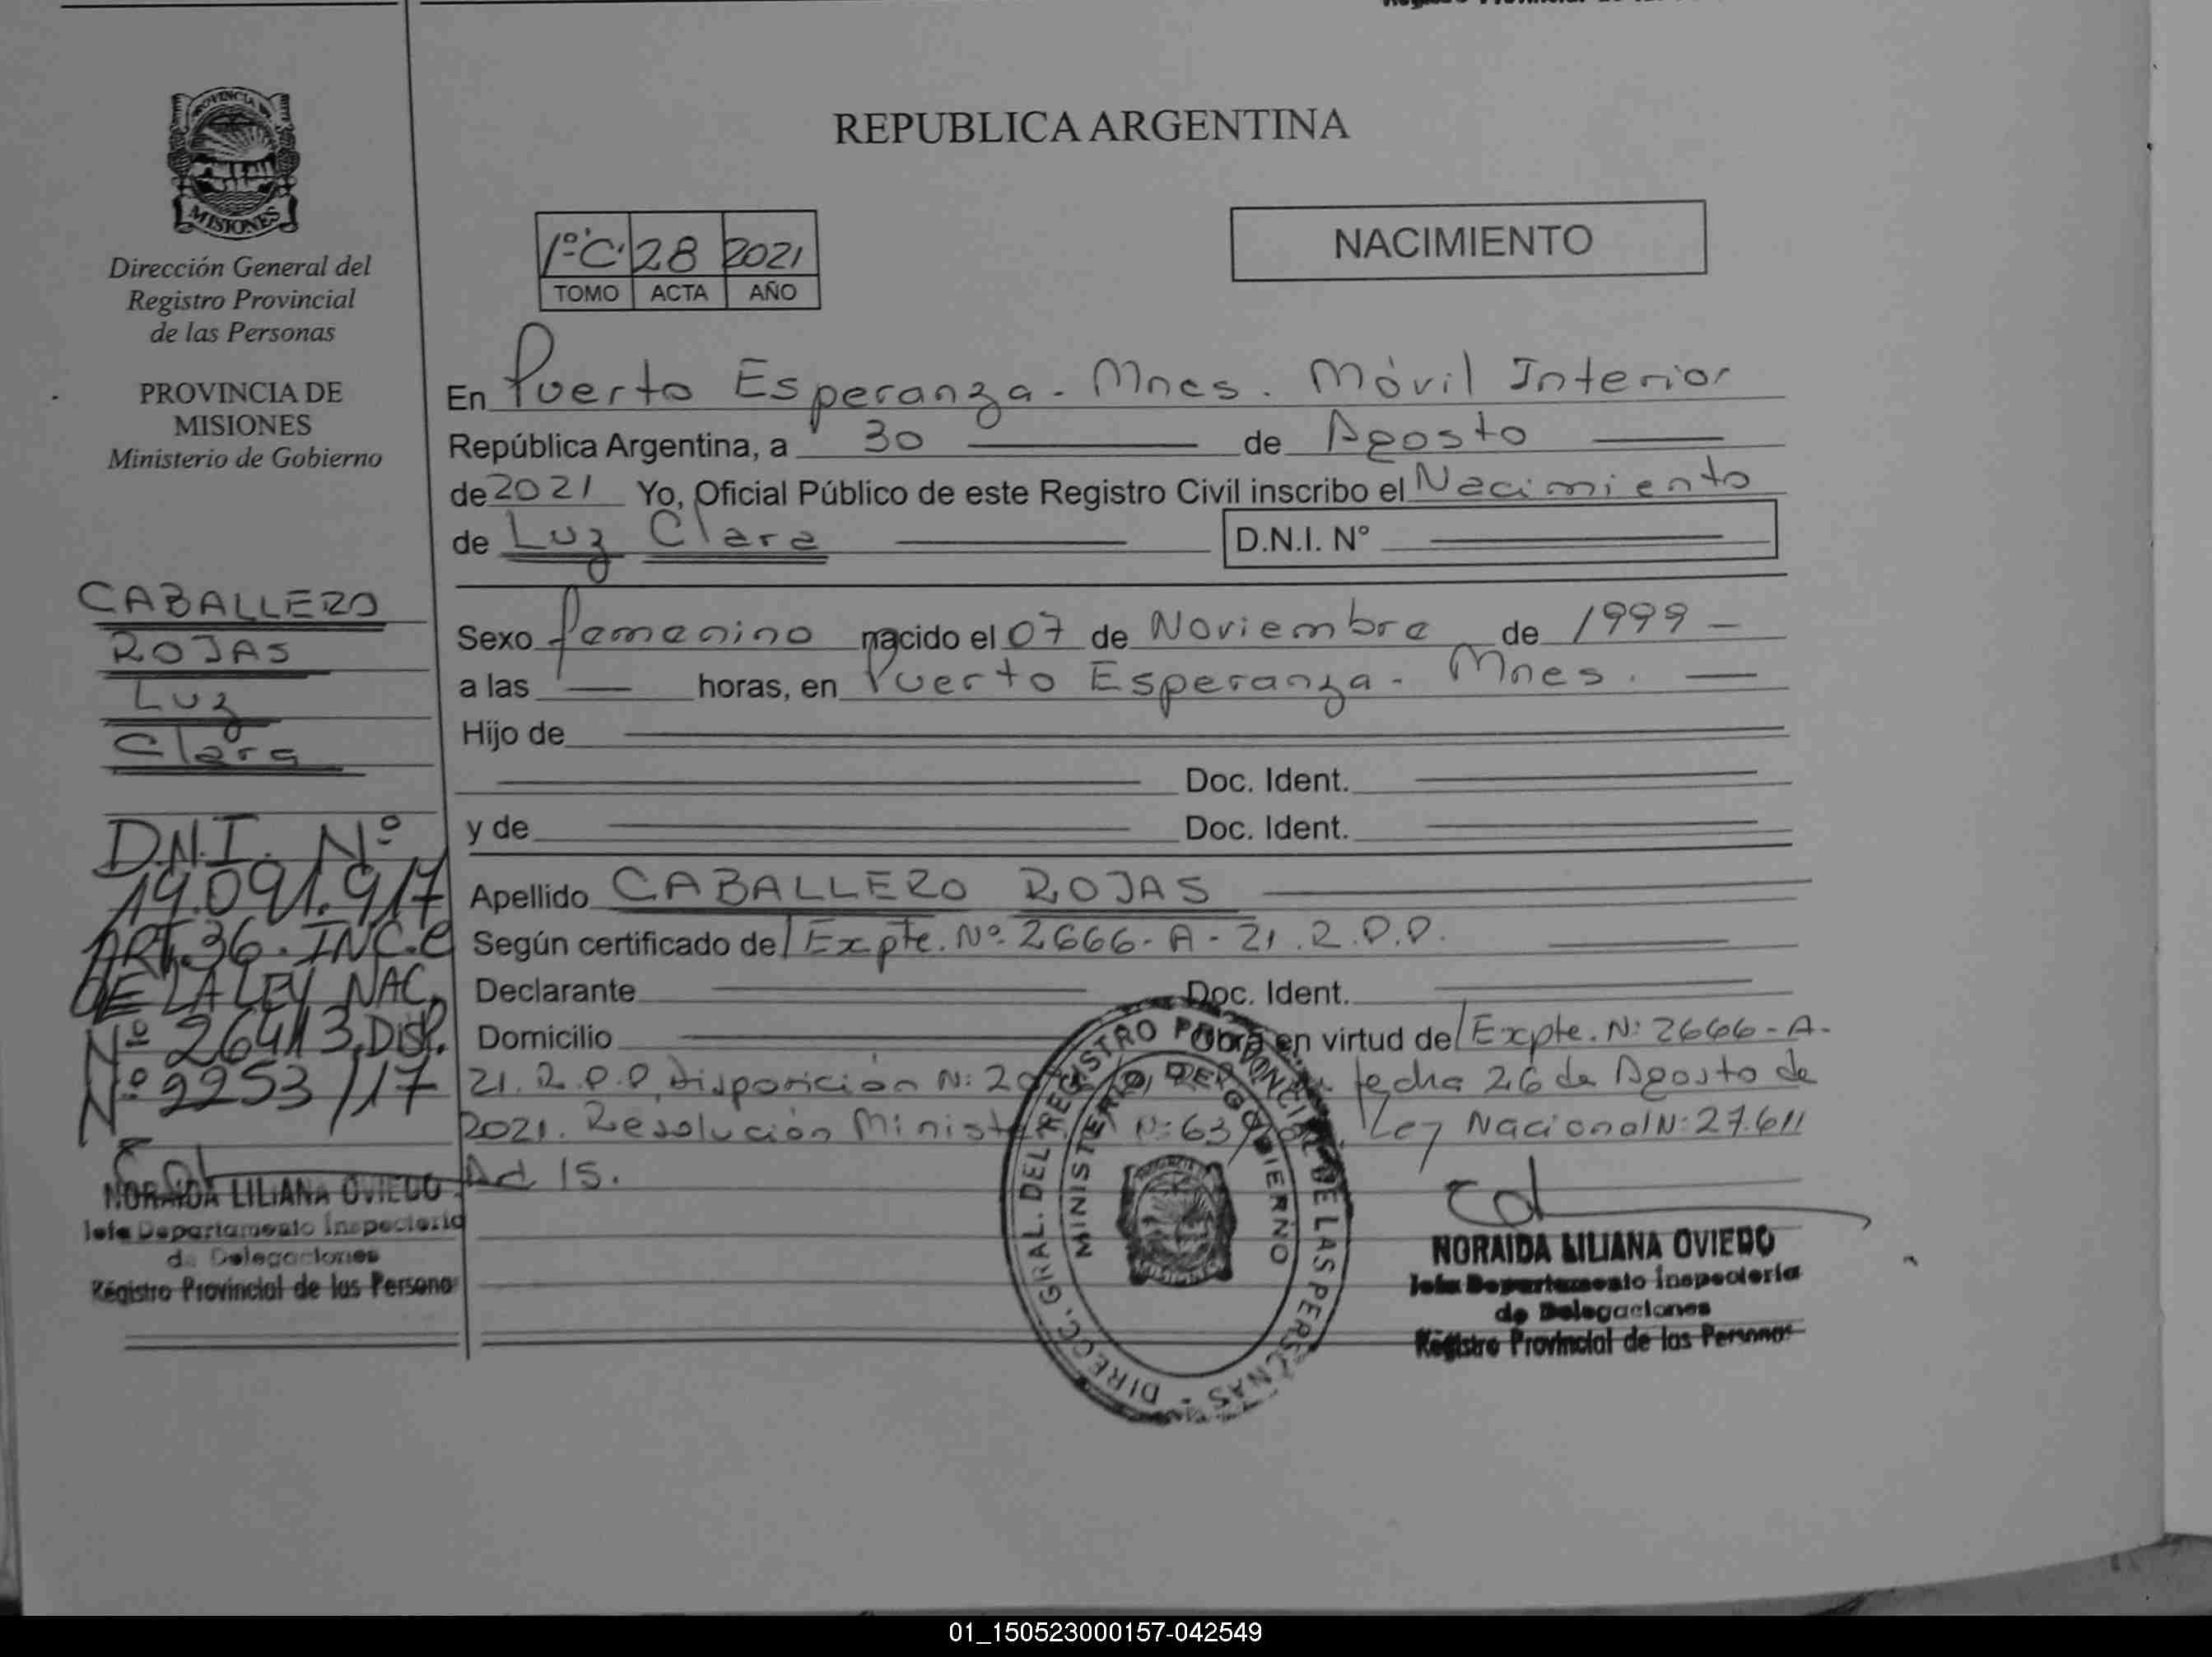 REPUBLICA ARGENTINA
PROVINCIA DE
MISIONES
Dirección General del
Registro Provincial
de las Personas
PROVINCIA DE
MISIONES
Ministerio de Gobierno
CABALLERO
ROJAS
Luz
Clara
D.N.I. Nº
19.091.917
ART.36.INC.C
DE LA LEY NAC.
Nº 26413.DISP.
Nº 2253/17
NORAIDA LILIANA OVIEDO
Jefa Departamento Inspectoría
de Delegaciones
Registro Provincial de las Persona
1º C. 28 2021
TOMO ACTA AÑO
NACIMIENTO
En Puerto Esperanza - Mnes. Móvil Interior
República Argentina, a 30 de Agosto
de 2021 Yo, Oficial Público de este Registro Civil inscribo el Nacimiento
de Luz Clara D.N.I. Nº
Sexo femenino nacido el 07 de Noviembre de 1999
a las horas, en Puerto Esperanza - Mnes.
Hijo de
Doc. Ident.
y de Doc. Ident.
Apellido CABALLERO ROJAS
Según certificado de Expte. Nº 2666-A-21.R.P.P.
Declarante Doc. Ident.
Domicilio Obra en virtud de Expte. Nº 2666-A-
21.R.P.P. Disposición Nº fecha 26 de Agosto de
2021. Resolución Ley Nacional Nº 27.611
Ad 15.
DIRECC. GRAL. DEL REGISTRO PROVINCIAL DE LAS PERSONAS
MINISTERIO DE GOBIERNO
MISIONES
NORAIDA LILIANA OVIEDO
Jefa Departamento Inspectoría
de Delegaciones
Registro Provincial de las Personas
01_150523000157-042549